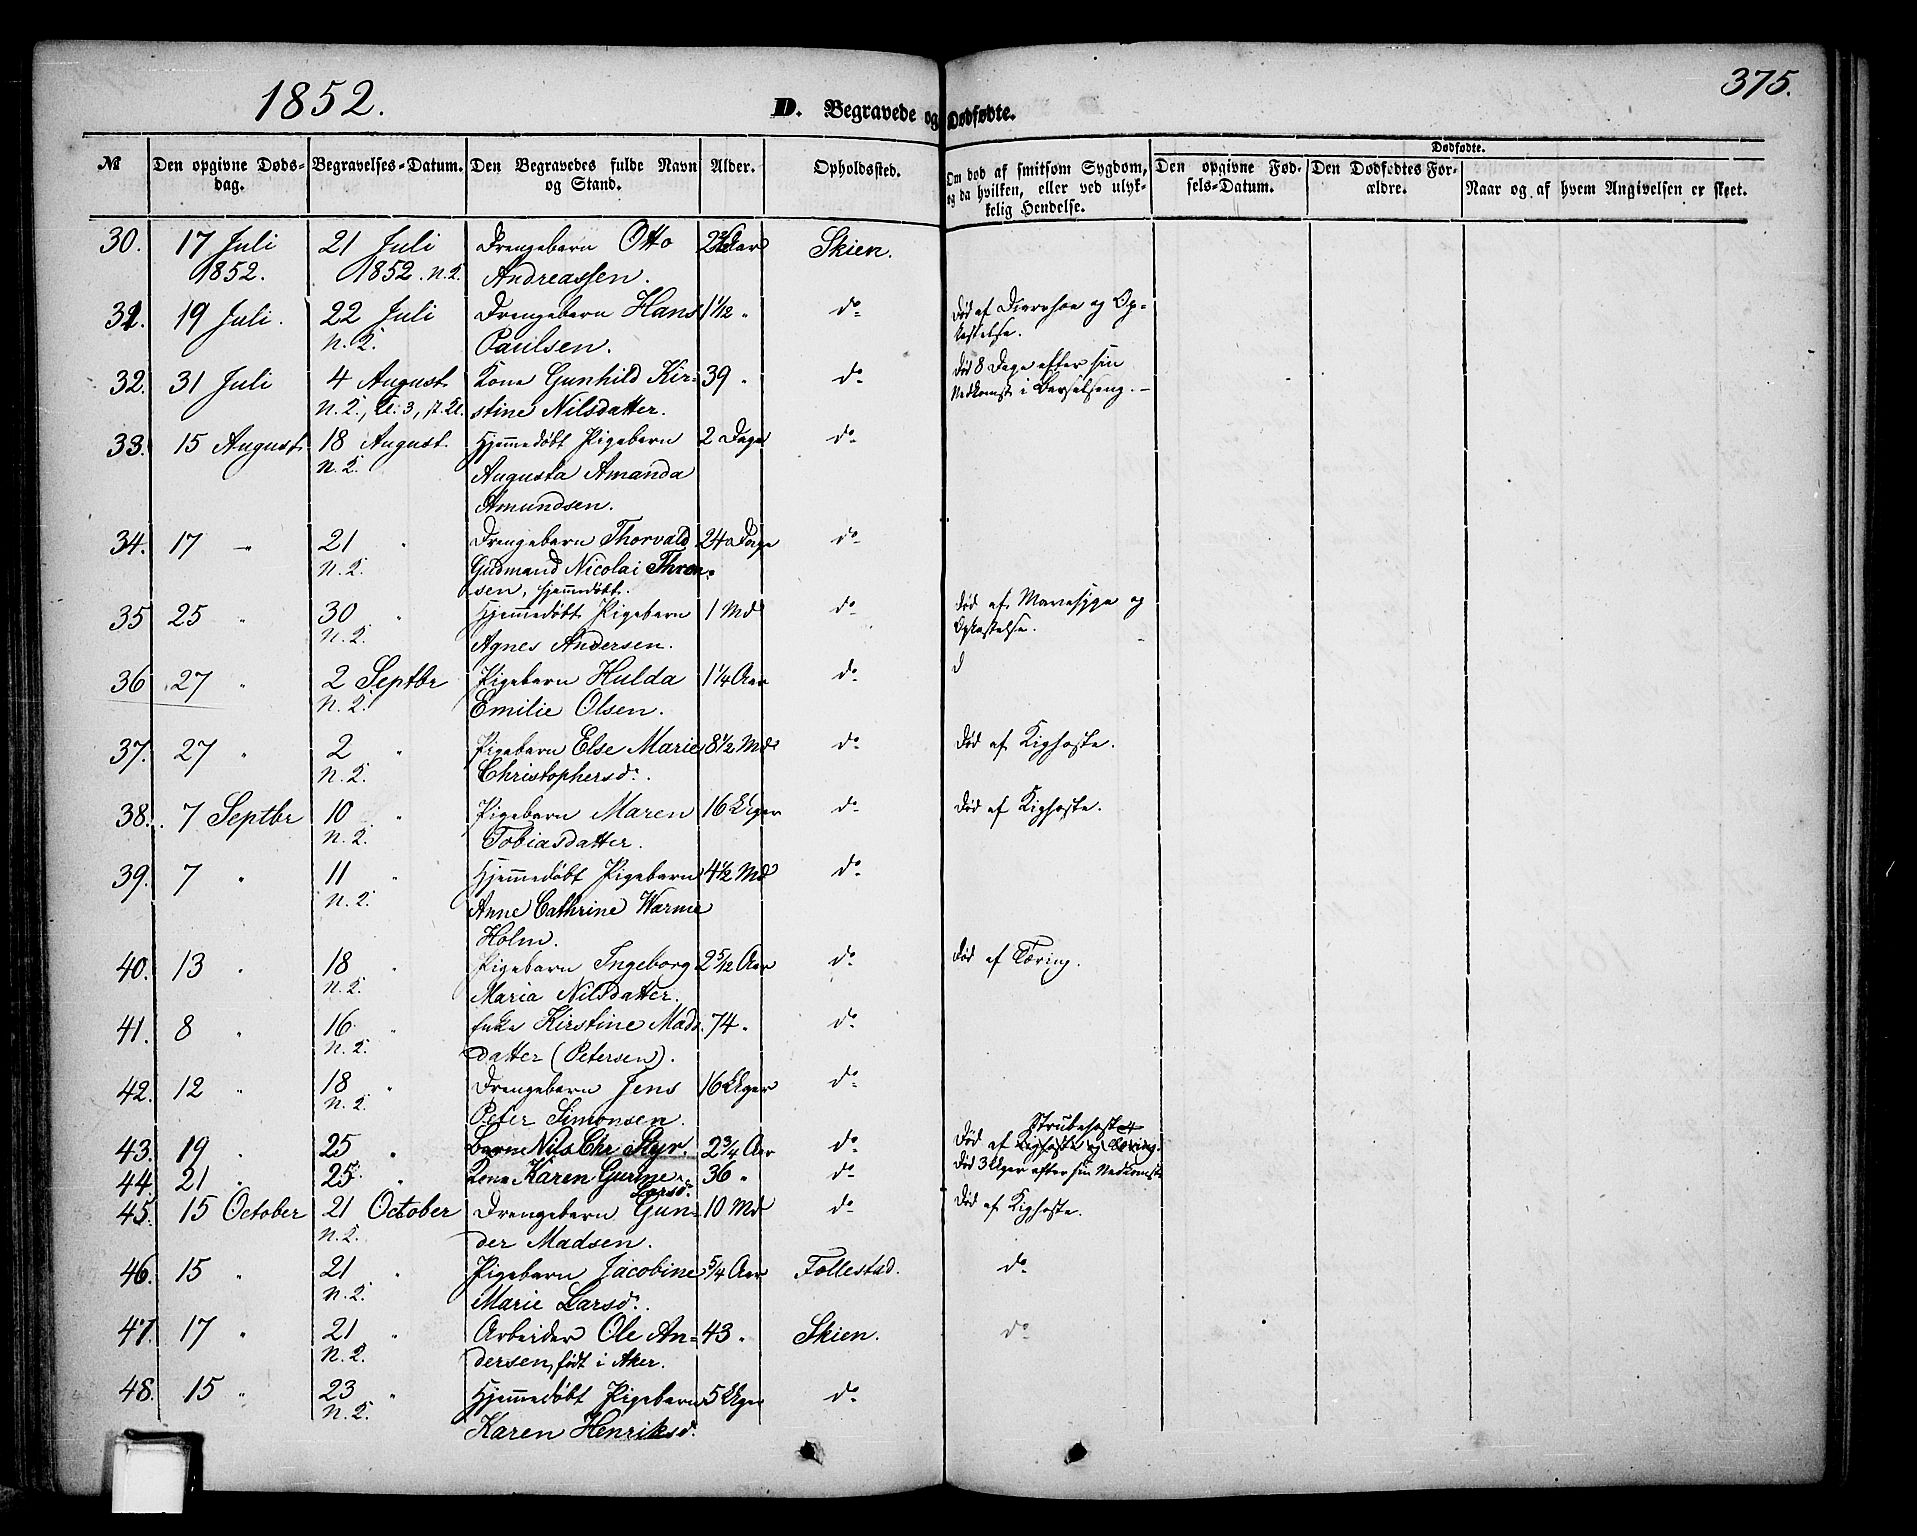 1852.
D. Begravede og Dødfødte.
375.
№ Den opgivne Døds-dag. Begravelses-Datum. Den Begravedes fulde Navn og Stand. Alder. Opholdssted. Om død af smitsom Sygdom, og da hvilken, eller ved ulyk-kelig Hendelse. Dødfødte. Den opgivne Fød-sels-Datum. Den Dødfødtes For-ældre. Naar og af hvem Angivelsen er skeet.
30. 17 Juli 21 Juli Drengebarn Otto Aar Skien.
1852. 1852. n.2. Andreassen.
31. 19 Juli. 22 Juli Drengebarn Hans 1 1/12 " do Død af Diarrhoe og Op-
n.2. Paulsen. kastelse.
32. 31 Juli 4 August Kone Gunhild Kir- 39 " do Død 8 Dage efter sin
n.2., stine Nilsdatter. Nedkomst i Barselseng. –
33. 15 August 18 August Hjemmedøbt Pigebarn 2 Dage do
n.2. Augusta Amanda
Amundsen.
34. 17 – 21 " Drengebarn Thorvald 24 Dage do
n.2. Gudmand Nicolai Thron-
sen, hjemmedøbt.
35 25 " 30 " Hjemmedøbt Pigebarn 1 Md do Død af Mavesyge og
n.2. Agnes Andersen. Opkastelse.
36 27 " 2 Septbr Pigebarn Hulda 1 1/4 Aar do
n.2. Emilie Olsen.
37. 27 " 2 " Pigebarn Else Marie 8 1/2 Md do Død af Kighoste.
n.2. Christophersd.
38. 7 Septbr 10 " Pigebarn Maren 16 Uger do Død af Kighoste.
n.2. Tobiasdatter.
39. 7 " 11 " Hjemmedøbt Pigebarn 4 1/2 Md do
n.2. Anne Cathrine Warme
Holm.
40. 13 " 18 " Pigebarn Ingeborg 2 5/12 Aar do Død af Tæring.
n.2. Maria Nilsdatter.
41. 8 " 16 " Enke Kirstine Mads- 74 " do
n.2. datter (Petersen).
42. 12 " 18 " Drengebarn Jens 16 Uger do
n.2. Peter Simonsen.
Strubehoste
43. 19 " 25 " Barn Nils Chr. 2 3/4 Aar do Død af Kighoste og Tæring.
44 21 " 25 " Kone Karen Gurine 36 " do Død 3 Uger efter sin Nedkomst
Larsd.
45. 15 October 21 October Drengebarn Gun- 10 Md do Død af Kighoste.
n.2. der Madsen.
46. 15 " 21 " Pigebarn Jacobine 5/4 Aar Follestad. do
n.2. Marie Larsd.
47. 17 " 21 " Arbeider Ole An- 43 " Skien. do
n.2. dersen, født i Aker.
48. 15 " 23 " Hjemmedøbt Pigebarn 5 Uger do
n.2. Karen Henriksd.